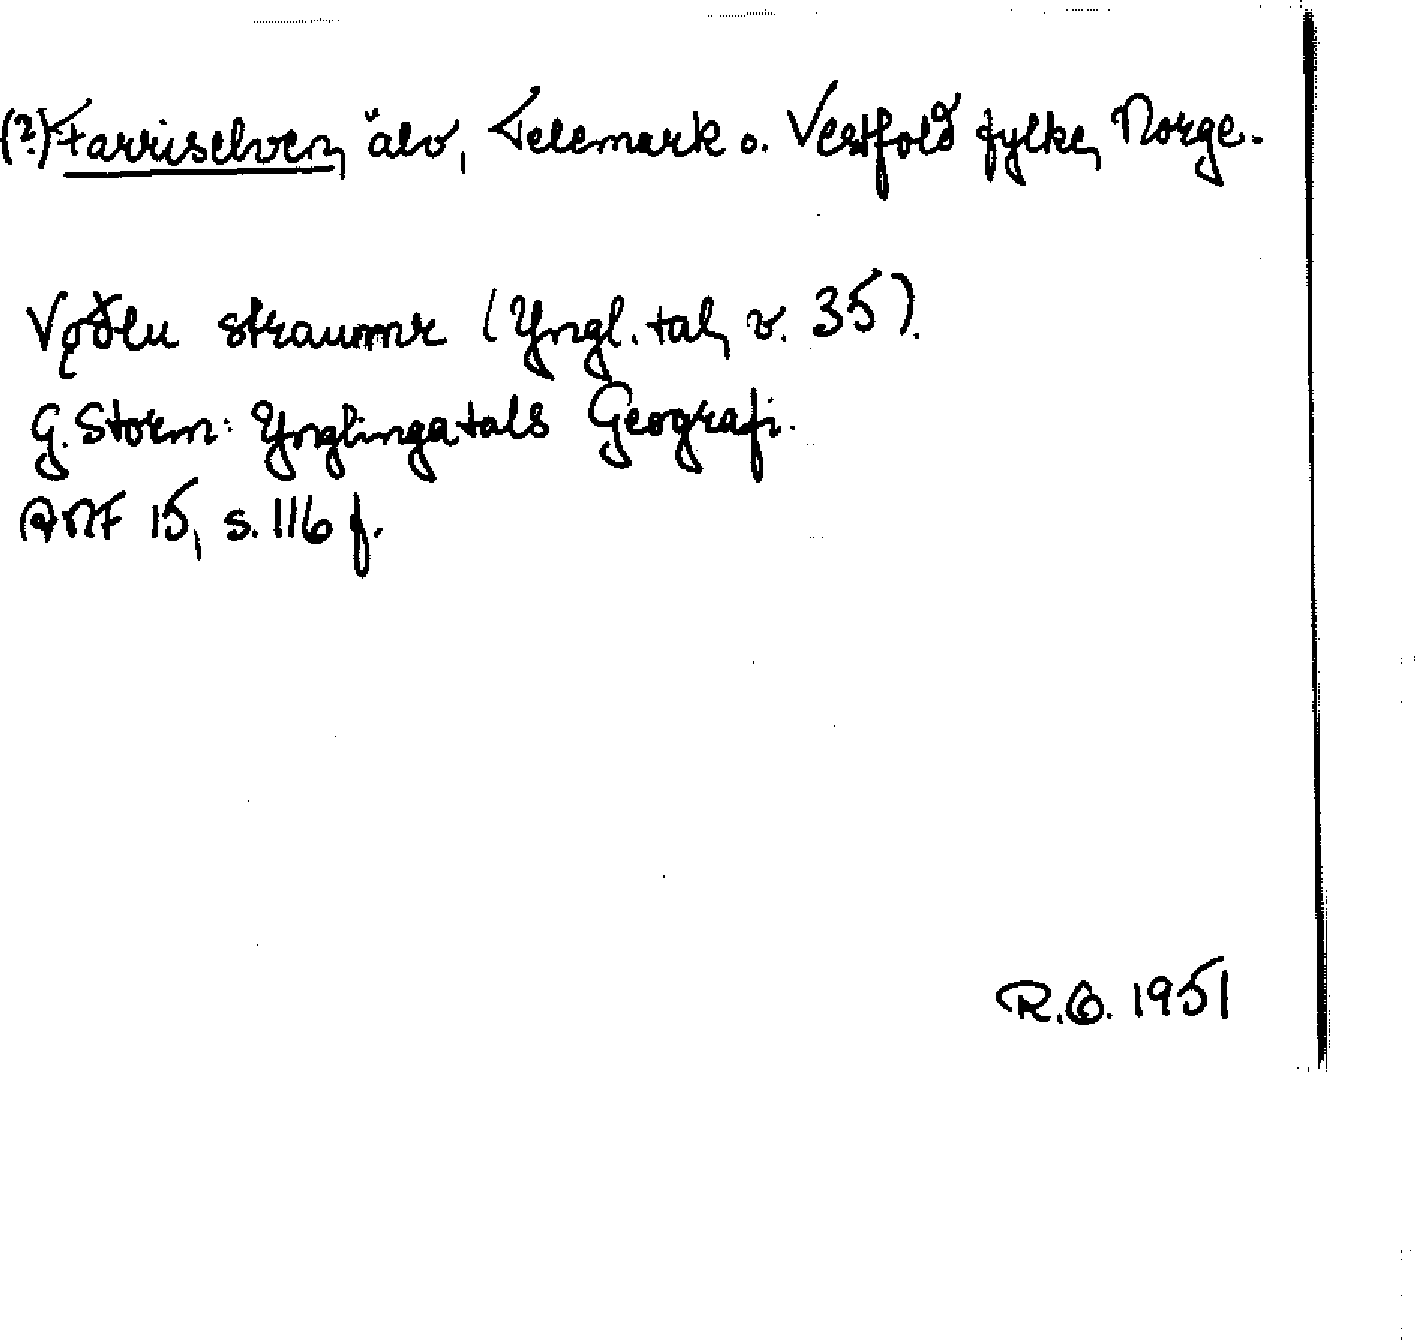 (?) Farriselven, älv, Telemark o. Vestfold fylke, Norge.
Vǫðlu straumr (Yngl. tal, v. 35).
G. Storm: Ynglingatals Geografi.
ANF 15, s. 116 f.
R.O. 1951